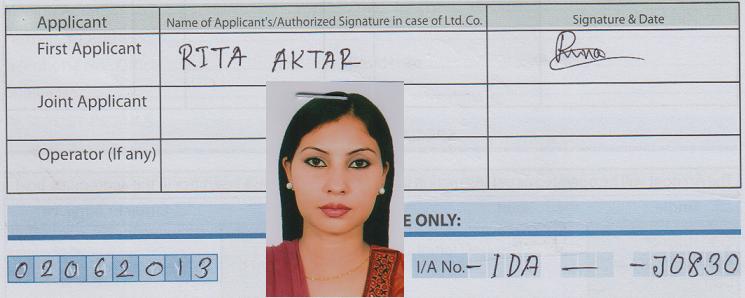 Applicant Name of Applicant's/Authorized Signature in case of Ltd. Co. Signature & Date
First Applicant RITA AKTAR
Joint Applicant
Operator (If any)
E ONLY:
02062013 I/A No. - IDA — - J0830